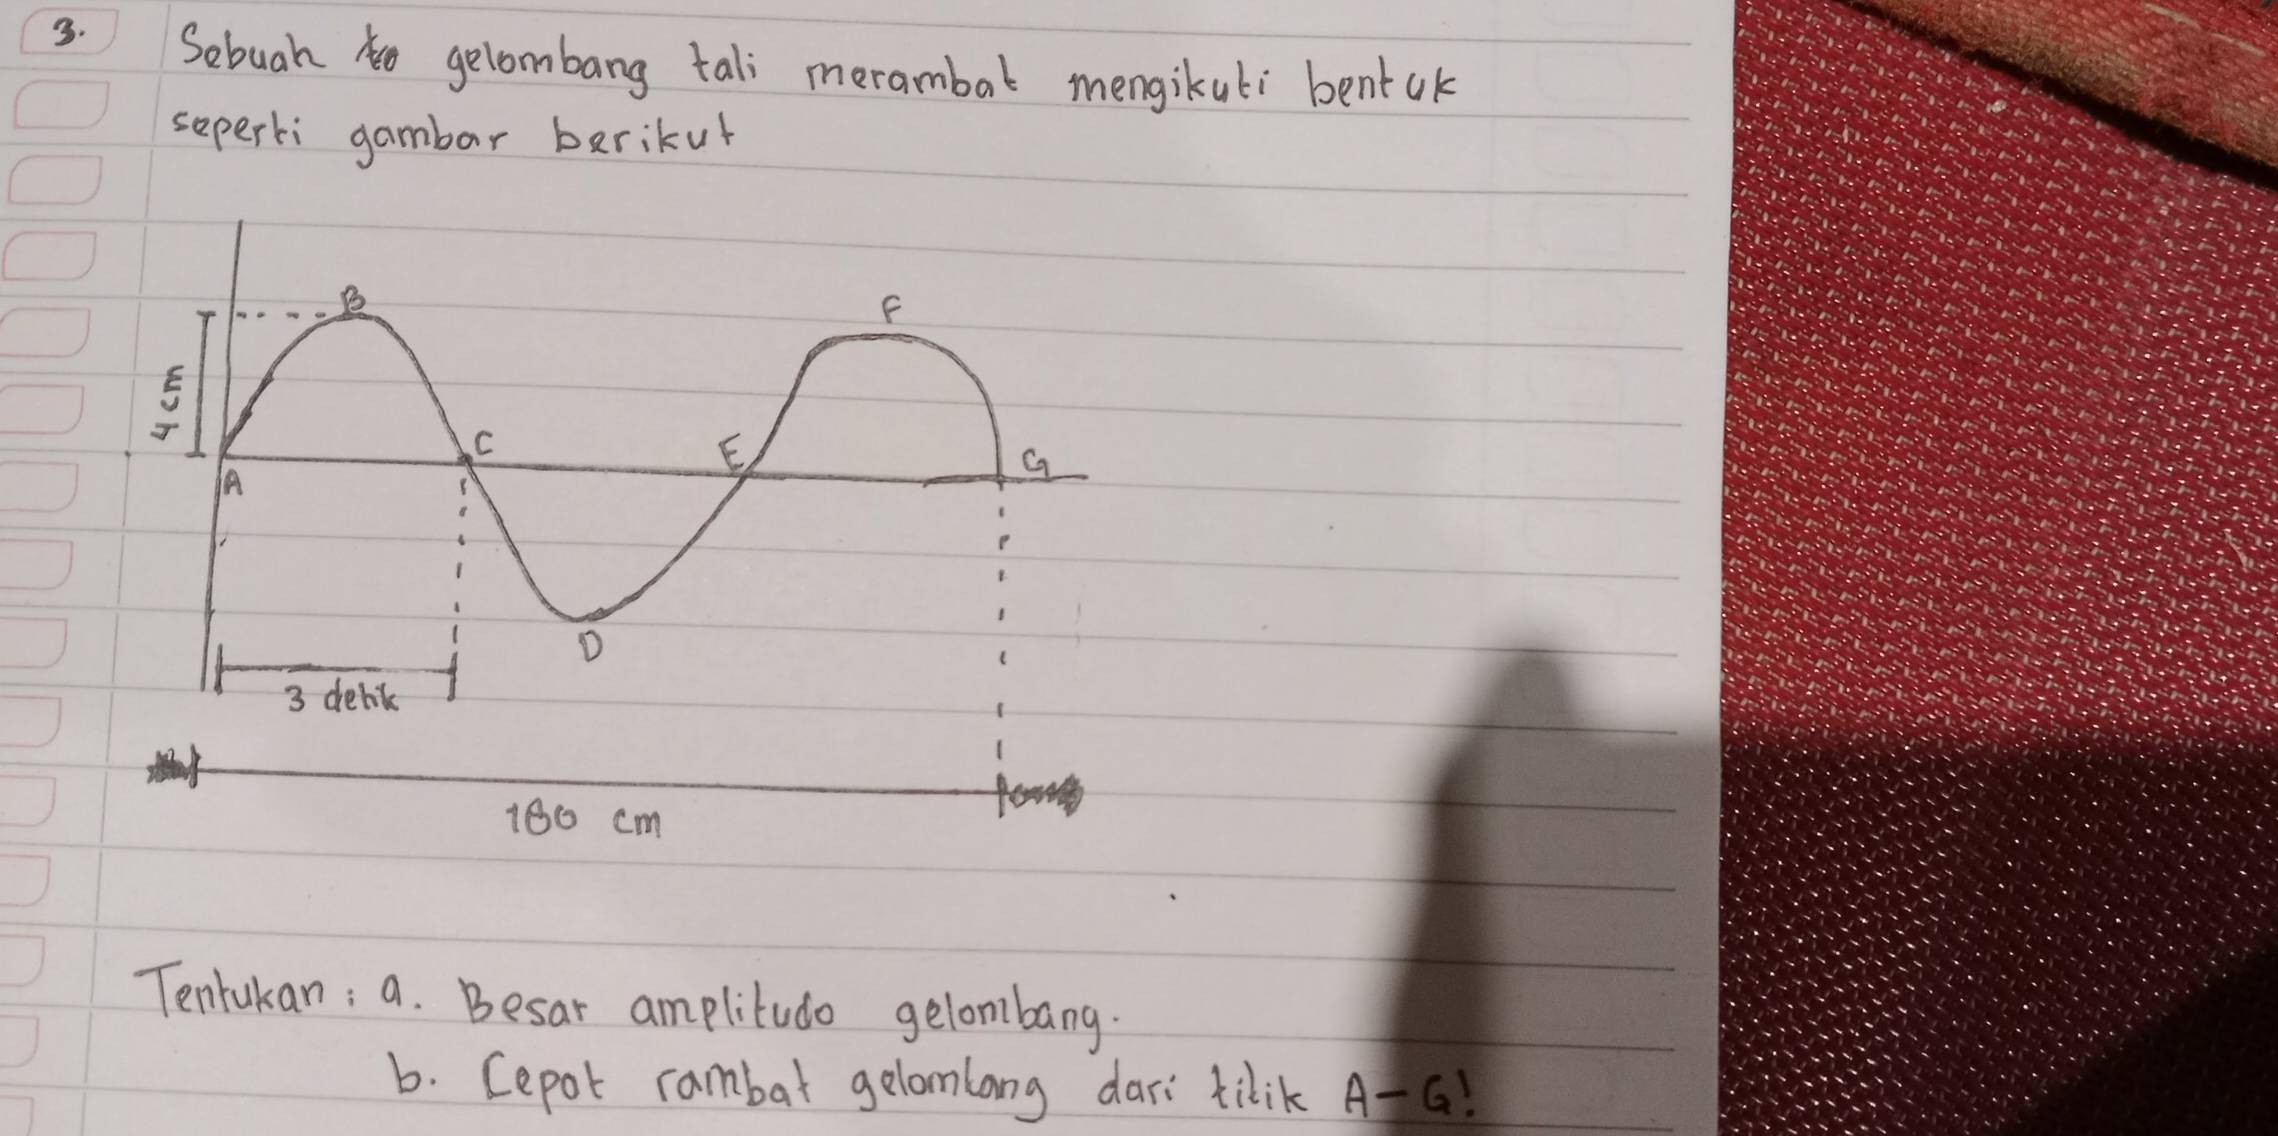 3. Sebuah gelombang tali merambat mengikuti bentuk
seperti gambar berikut
B
F
4 cm
C
E
G
A
D
3 detik
180 cm
Tentukan : a. Besar amplitudo gelombang.
b. Cepat rambat gelombang dari titik A-G!